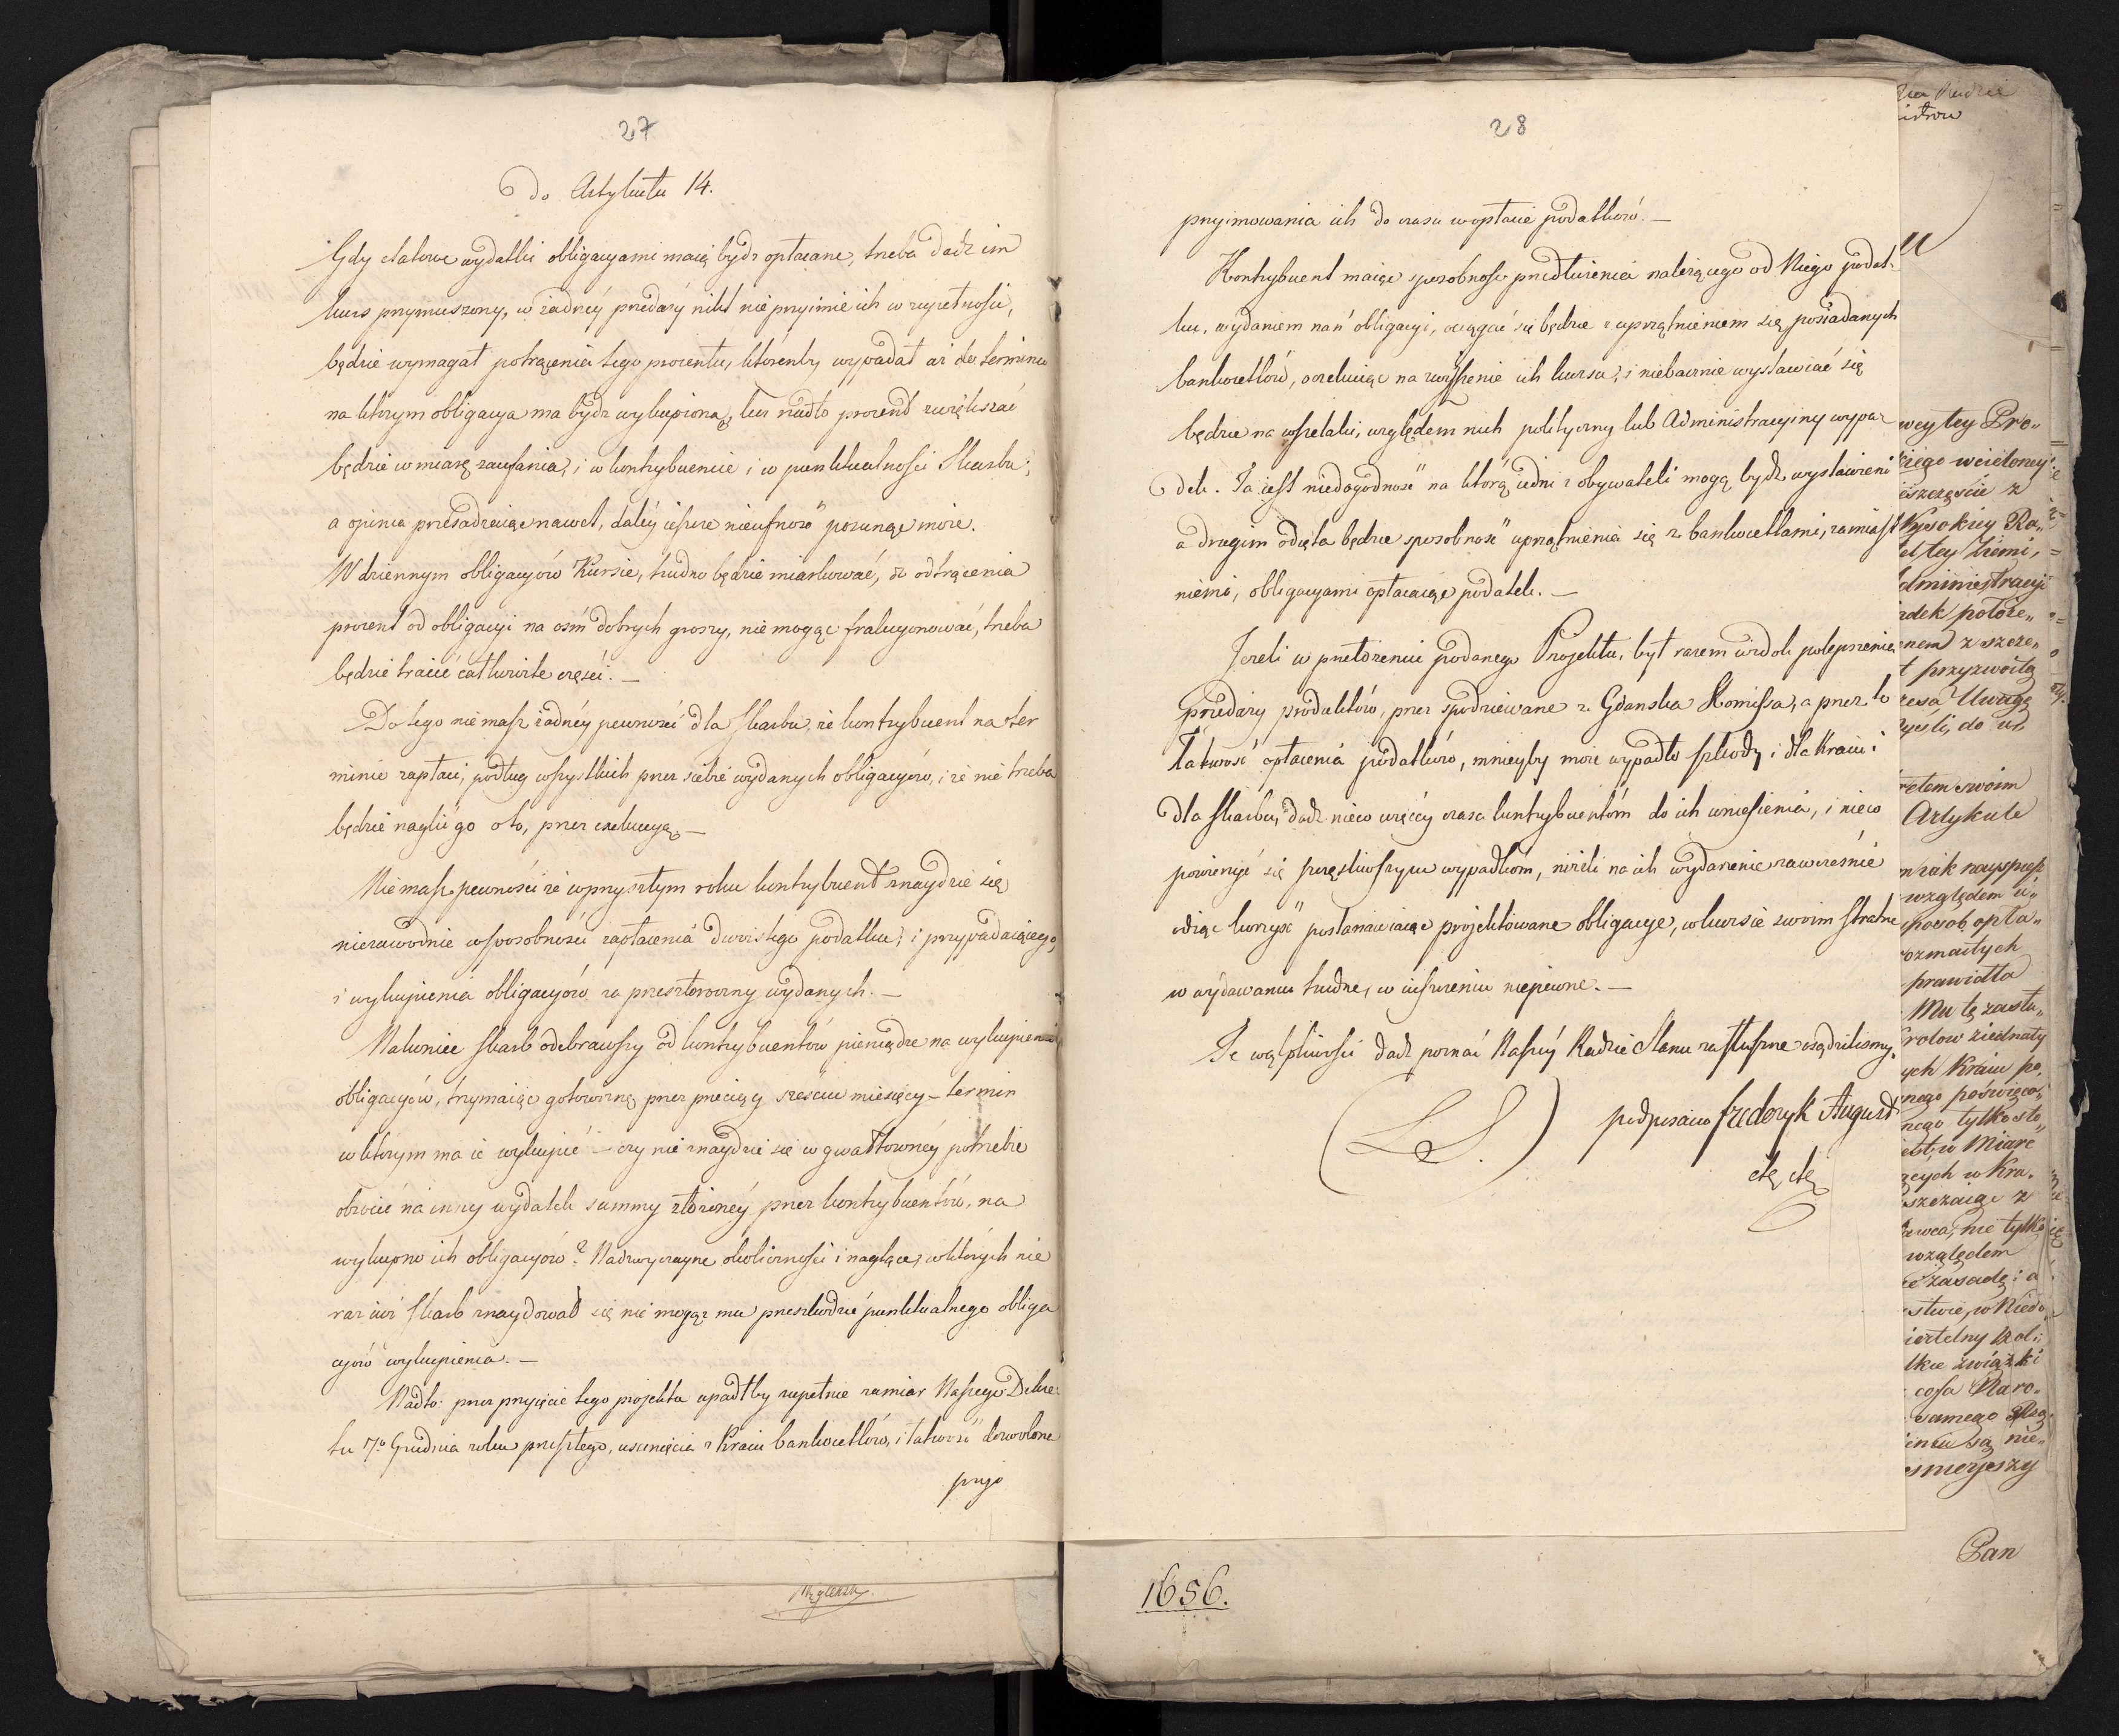 27
Do Artykułu 14.
Gdy etatowe wydatki obligacyami maią bydź opłacane, trzeba dadź im
kurs przymuszony, w żadnéy przedaży nikt nie przyimie ich w zupełności,
będzie wymagał potrącenia tego procentu, którenby wypadał aż do terminu
na którym obligacya ma bydź wykupioną, kurs nadto procent zwiększać
będzie w miarę zaufania, i w kontrybuencie i w punktualności Skarbu;
a opinia przesadzaiąc nawet, daléy ieszcze nieufność posunąć może.
W dziennym obligacyów Kursie, trudno będzie miarkować, do odtrącenia
procent od obligacyi na ośm dobrych groszy, nie mogąc frakcyonować, trzeba
będzie tracić całkowite części. —
Do tego nie masz żadnéy pewności dla Skarbu, że kontrybuent na ter
minie zapłaci, podług wszystkich przez siebie wydanych obligacyów, i że nie trzeba
będzie naglić go oto, przez exekucyą. —
Nie masz pewności że w przyszłym roku kontrybuent znaydzie się
niezawodnie w sposobności zapłacenia dwoistego podatku; i przypadaiącego,
i wykupienia obligacyów za przeszłoroczny wydanych. —
Nakoniec Skarb odebrawszy od kontrybuentów pieniądze na wykupienie
obligacyów, trzymaiąc gotowiznę przez przeciąg sześciu miesięcy – termin
w którym ma ie wykupić – czy nie znaydzie się w gwałtownéy potrzebie
obrócić na inny wydatek summy złożonéy przez kontrybuentów, na
wykupno ich obligacyów? Nadzwyczayne okoliczności i naglące, w których nie
raz iuż Skarb znaydował się nie mogąż mu przeszkodzić punktualnego obliga
cyów wykupienia. —
Nadto: przez przyięcie tego projektu upadłby zupełnie zamiar Naszego Dekre
tu 7º Grudnia roku przeszłego, usunięcia z Kraiu bankocetlów, i łatwość dozwolona
przy
28
przyimowania ich do czasu w opłacie podatków. —
Kontrybuent maiąc sposobność przedłużenia należącego od Niego podat-
ku, wydaniem nań obligacyi, ociągać się będzie z uprzątnieniem się posiadanych
bankocetlów, oczekuiąc na zwyższenie ich kursu, i niebacznie wystawiać się
będzie na wszelaki, względem nich polityczny lub Administracyiny wypa-
dek. Ta iest niedogodność na którą iedni z obywateli mogą bydź wystawieni
a drugim odięta będzie sposobność uprzątnienia się z bankocetlami, zamiast
niemi, obligacyami opłacaiąc podatek. —
Jeżeli w przełożeniu podanego Projektu, był razem widok polepszenia
przedaży produktów, przez spodziewane z Gdańska Komissa, a przez to
łatwość opłacenia podatków, mnieyby może wypadło szkody i dla Kraiu i
dla Skarbu, dadź nieco więcéy czasu kontrybuentóm do ich uniesienia, i nieco
powierzyć się szczęśliwszym wypadkom, niżeli na ich wydarzenie zawcześnie
idąc korzyść postanawiaiąc projektowane obligacye, w kursie swoim stratne
w wydawaniu trudne, w iszczeniu niepewne. —
Te wątpliwości dadź poznać Naszéy Radzie Stanu za słuszne osądziliśmy.
(L.S.) podpisano Frederyk August
etc etc
1656.
Pan